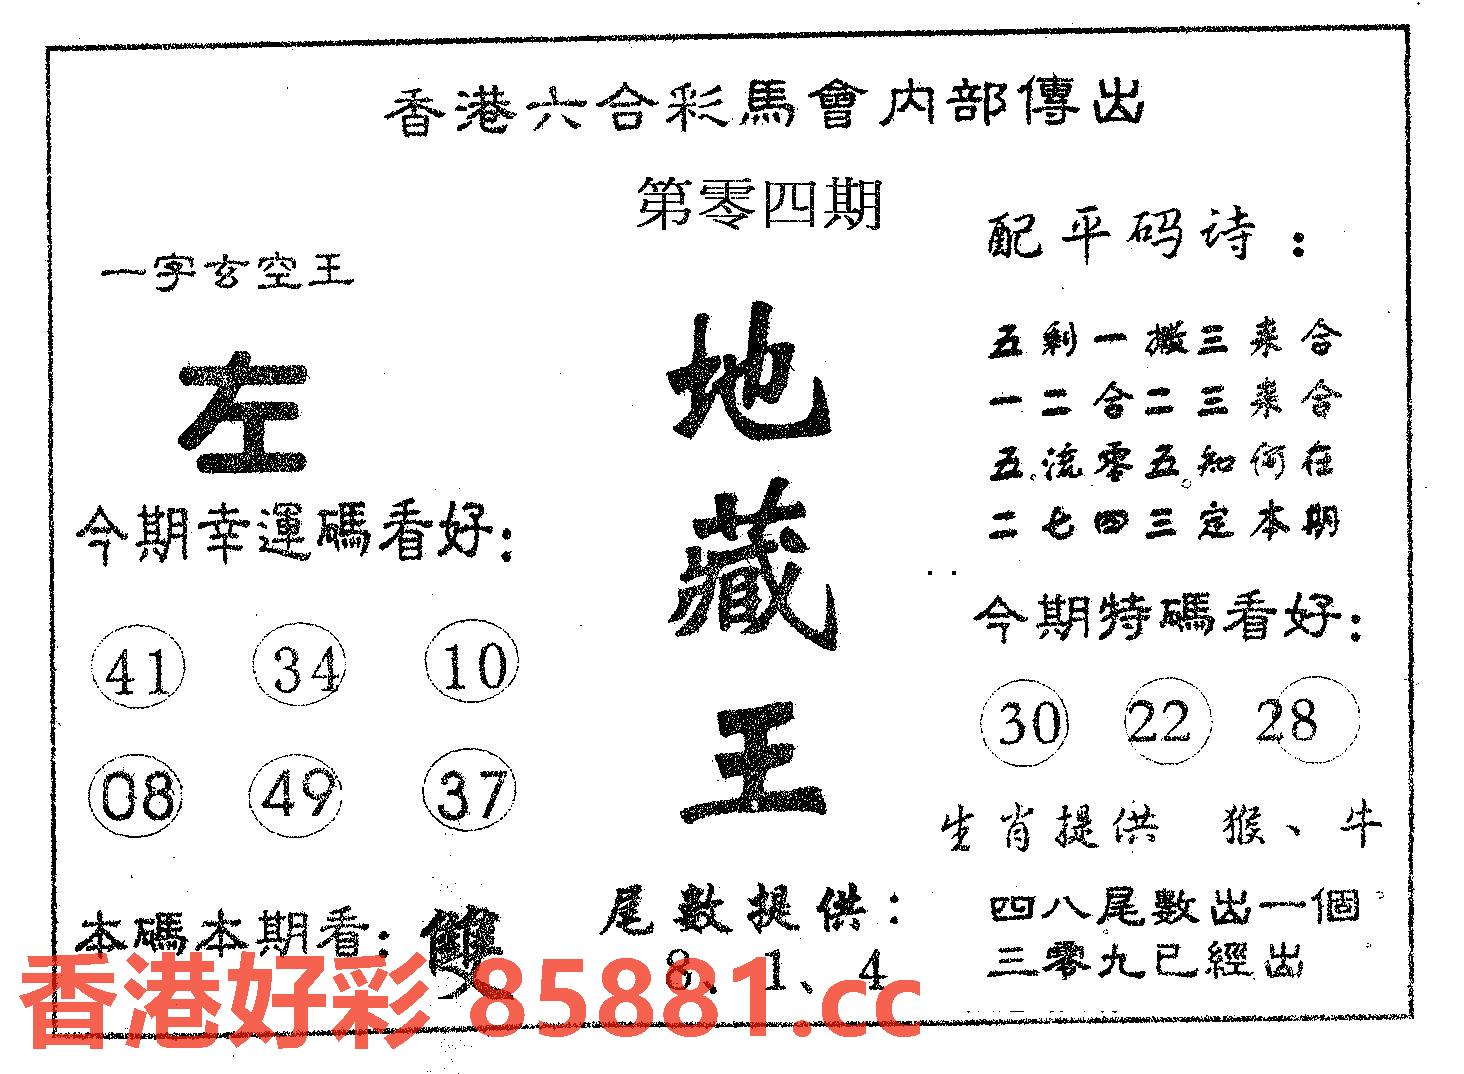 香港六合彩馬會内部傳出
第零四期
一字玄空王
左
今期幸運碼看好：
41 34 10
08 49 37
本碼本期看：雙
地
藏
王
尾數提供：
8、1、4
配平码诗：
五剩一搬三来合
一二合二三来合
五流零五知何在
二七四三定本期
今期特碼看好：
30 22 28
生肖提供 猴、牛
四八尾數出一個
三零九已經出
香港好彩 85881.cc